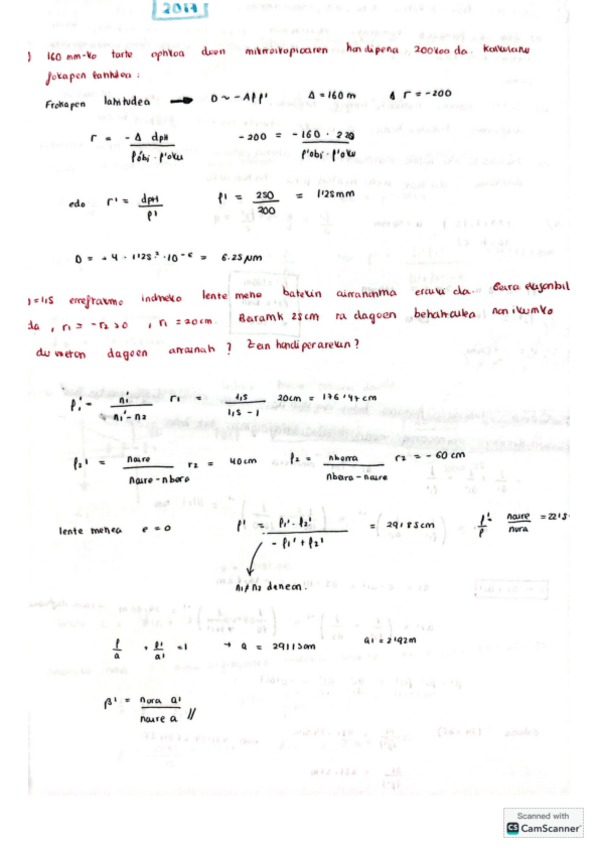 2017
) 160 mm-ko tarte optikoa duen mikroskopioaren handipena 200koa da. Kalkulatu
fokapen latitudea :
Frokapen latitudea → D ~ -Aƒƒ' Δ = 160 m Δ r = -200
r = -Δ dpH / f'obj · f'oku -200 = -160 · 250 / f'obj · f'oku
edo r' = dpH / f' f' = 250 / 200 = 1'25mm
D = - 4 · 1'25² · 10⁻⁶ = 6.25 μm
)=1,5 errefrakzio indizeko lente mehe batekin arrainontzia eraiki da. Beira
da , r₁ = -r₂ > 0 , r₁ = 20cm. Beiratik 25cm ra dagoen behatzailea non ikusiko
du bertan dagoen arraina ? Zein handiperarekin ?
f₁' = n₁' / n₁' - n₂ r₁ = 1,5 / 1,5 - 1 20cm = 176'47cm
f₂' = naire / naire - nbera r₂ = 40cm f₂ = nberra / nbera - naire r₂ = - 60 cm
lente mehea e = 0 f' = f₁' · f₂' / - f₁' + f₂' = (29185cm f' / f naire / nura = 2215
n₁ ≠ n₂ denean.
f / a + f' / a' = 1 → a = 29113cm a' = 2'92m
β' = nura a' / naire a //
Scanned with
CS CamScanner